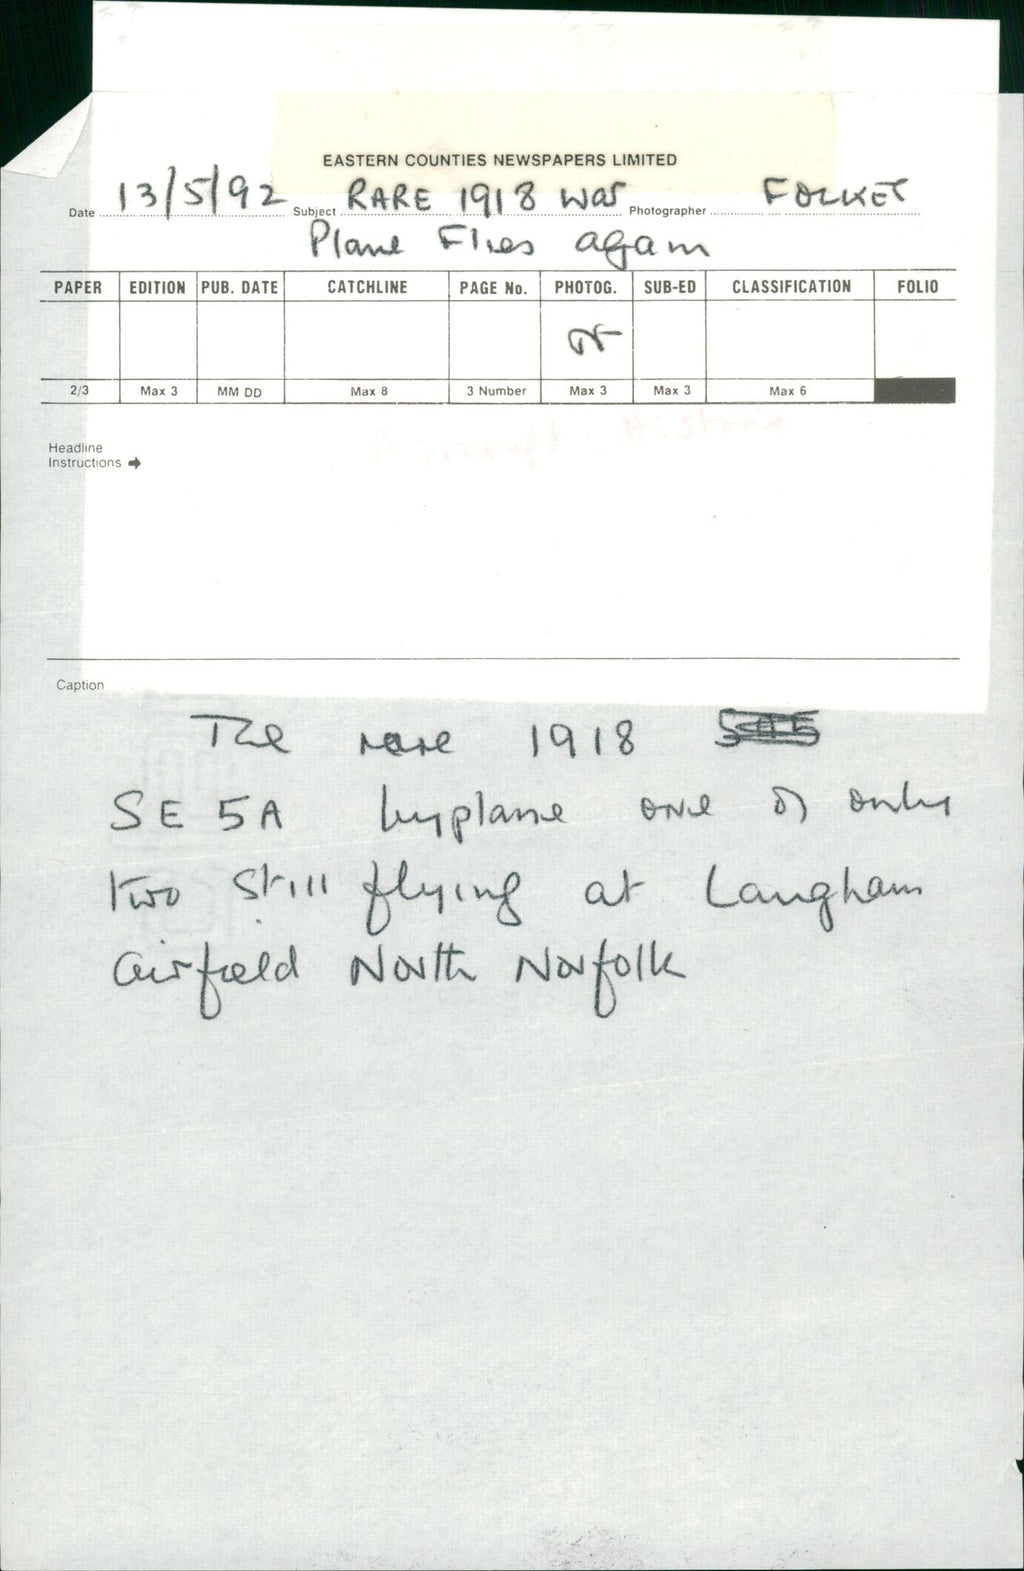 EASTERN COUNTIES NEWSPAPERS LIMITED
Date 13/5/92 Subject RARE 1918 War Photographer FOLKET
Plane Flies again
PAPER EDITION PUB. DATE CATCHLINE PAGE No. PHOTOG. SUB-ED CLASSIFICATION FOLIO
2/3 Max 3 MM DD Max 8 3 Number Max 3 Max 3 Max 6
Headline
Instructions
Caption
The rare 1918
SE 5A byplane one of only
two still flying at Langham
airfield North Norfolk